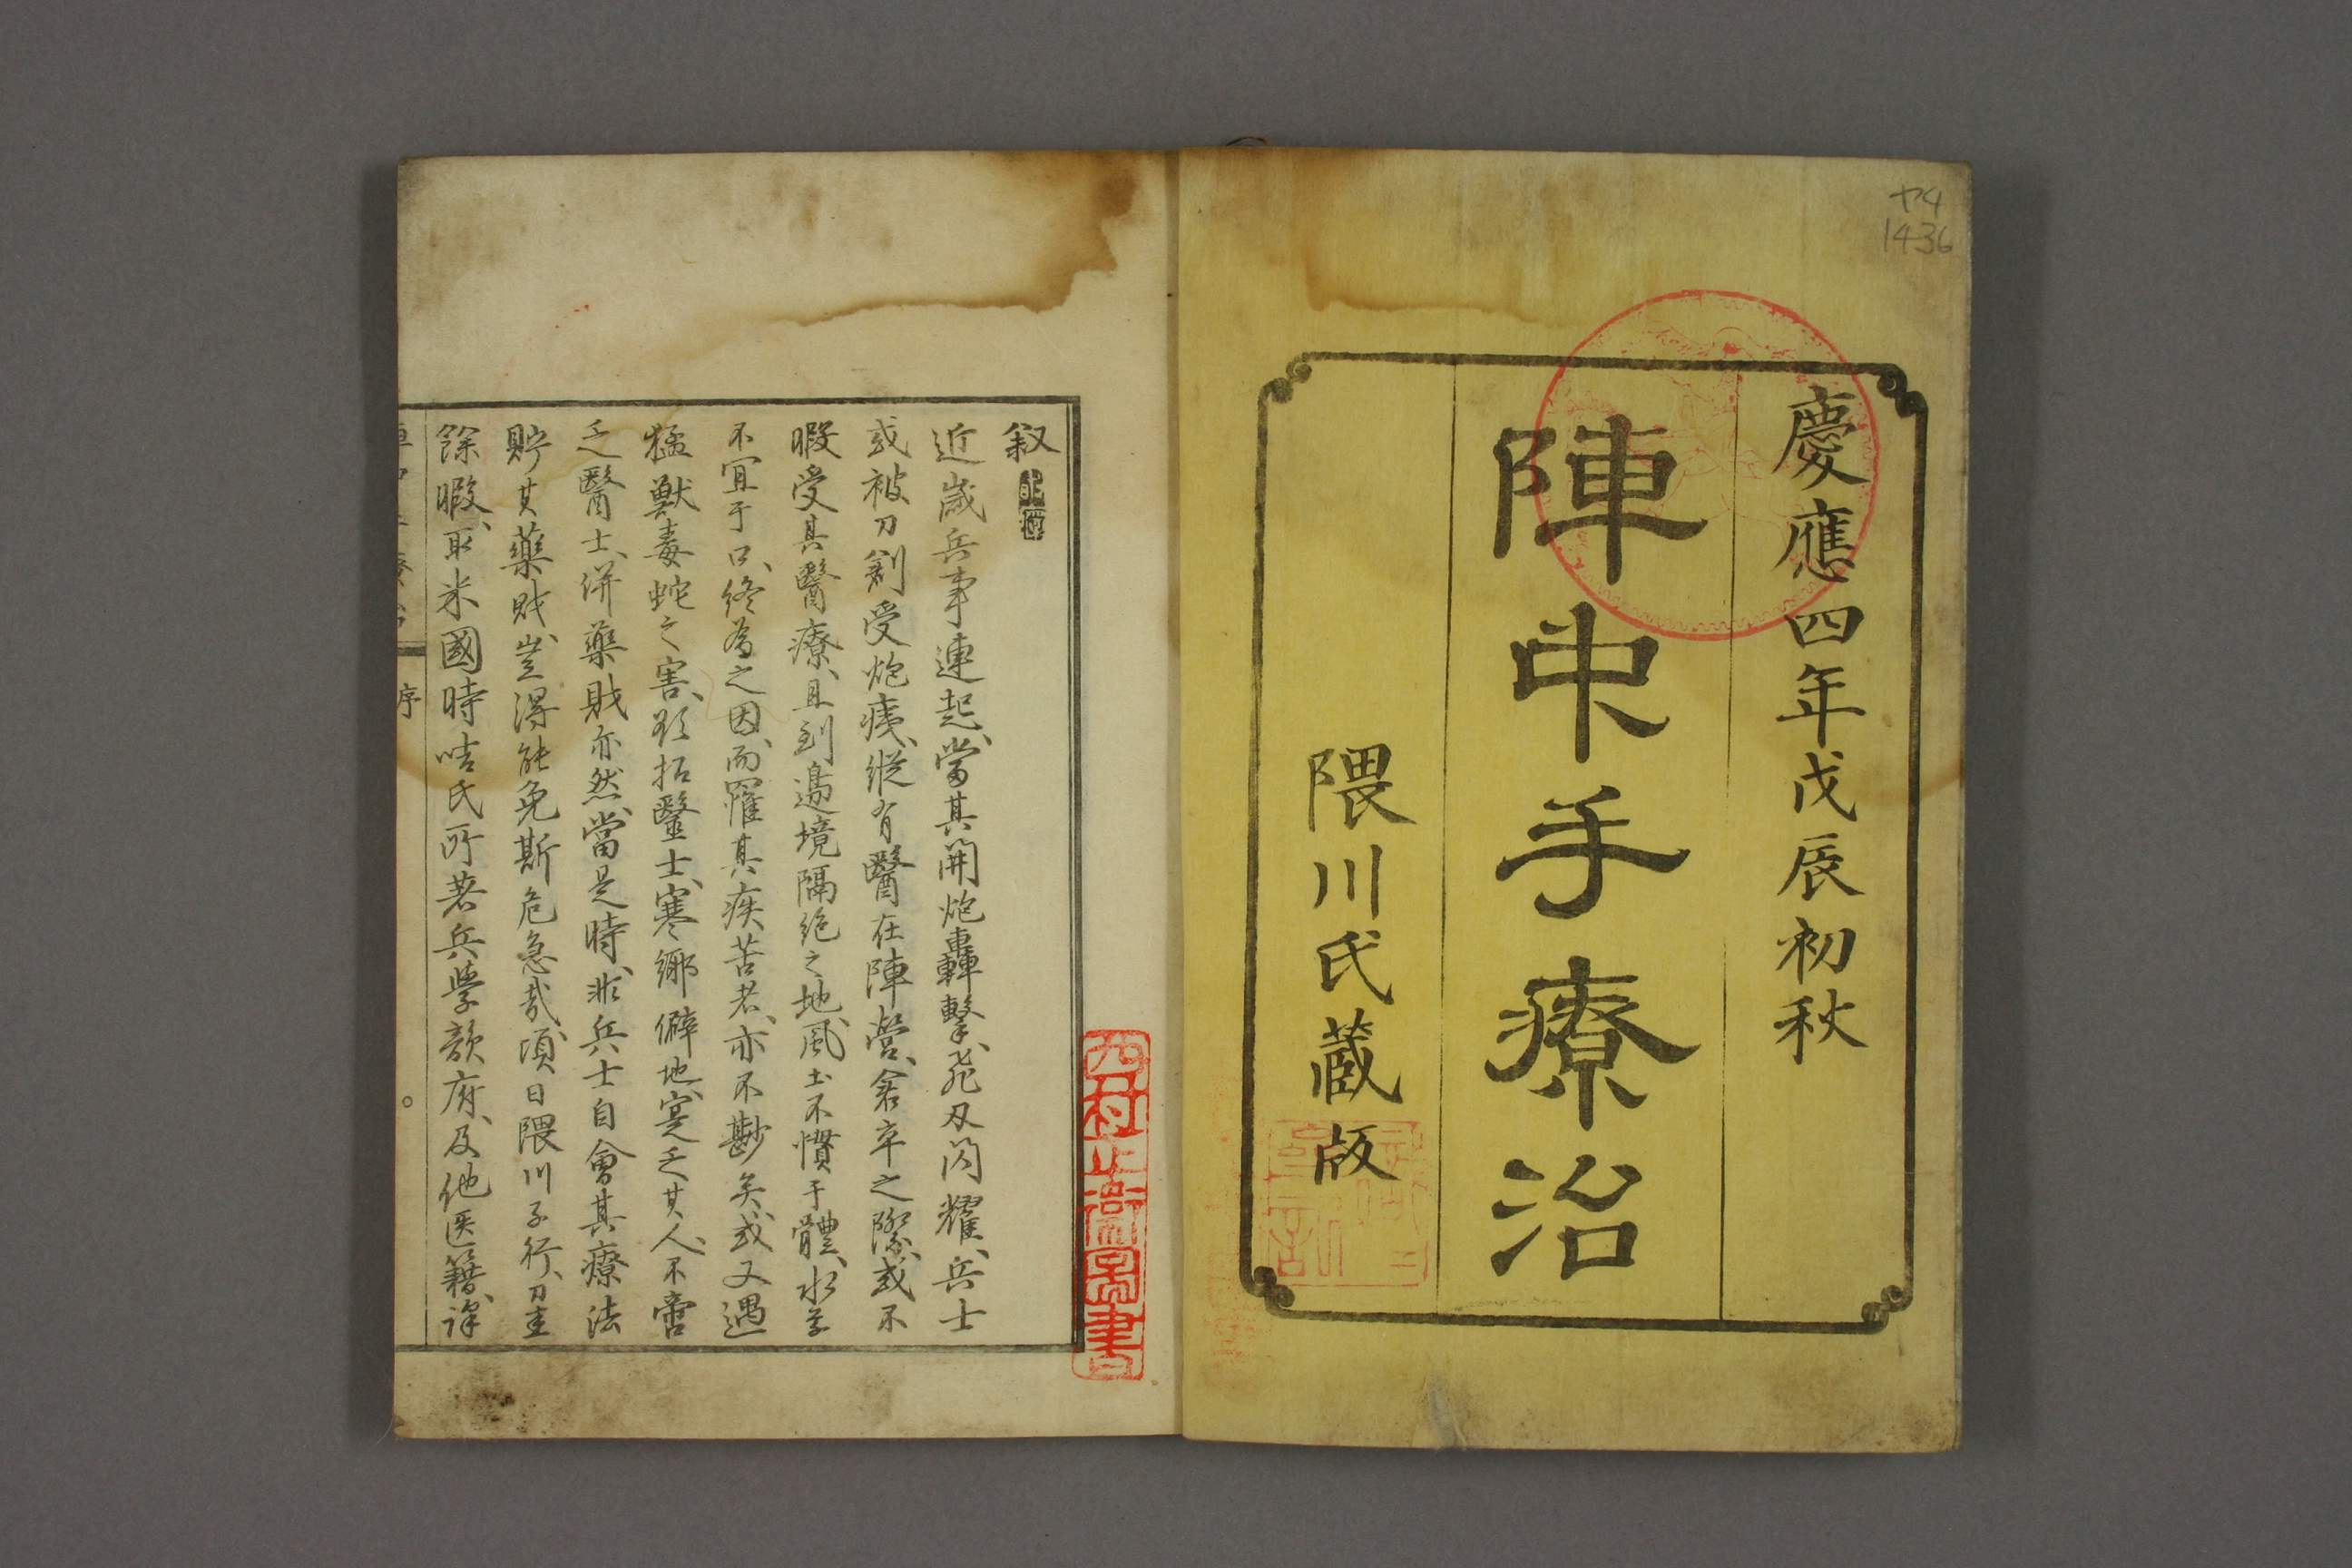 ヤ4
1436
慶應四年戊辰初秋
陣中手療治
隈川氏蔵版
叙
近歳兵事連起、當其開炮轟撃、花刃闪耀、兵士
或被刀剏受炮痍、縦有醫在陣営、倉卒之際、或不
暇受其醫療、且到邊境隔絶之地、風土不慣于體、水
不宜于口、終為之因、而罹其疾苦者、亦不尠矣、或又遇
猛獣毒蛇之害、欲招醫士、寒郷僻地、寔乏其人、不啻
乏醫士、併藥財亦然、當是時、非兵士自會其療法
貯其藥財、豈得能免斯危急哉、頃日隈川子行、刀圭
餘暇、取米國時咭氏所著兵學韻府、及他医籍、譯
序
西村 圖書